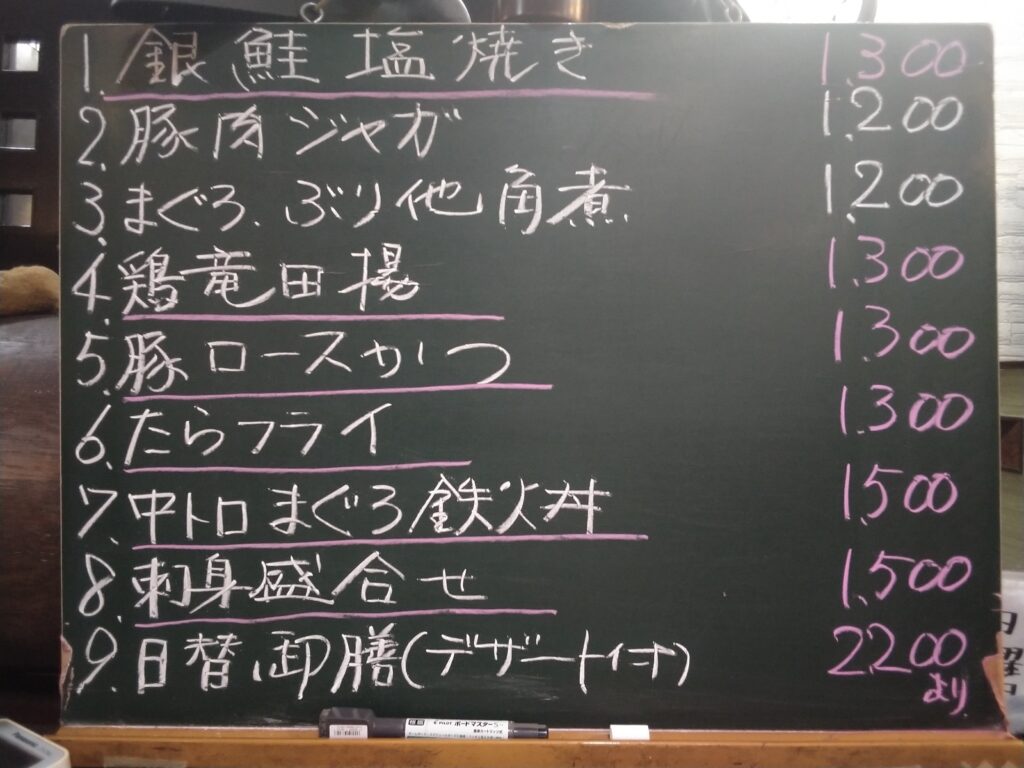 1. 銀鮭塩焼き 1.300
2. 豚肉ジャガ 1.200
3. まぐろ、ぶり他角煮 1.200
4. 鶏竜田揚 1.300
5. 豚ロースかつ 1.300
6. たらフライ 1.300
7. 中トロまぐろ鉄火丼 1.500
8. 刺身盛合せ 1.500
9. 日替御膳(デザート付) 2200
より
ボードマスター
日
曜
日